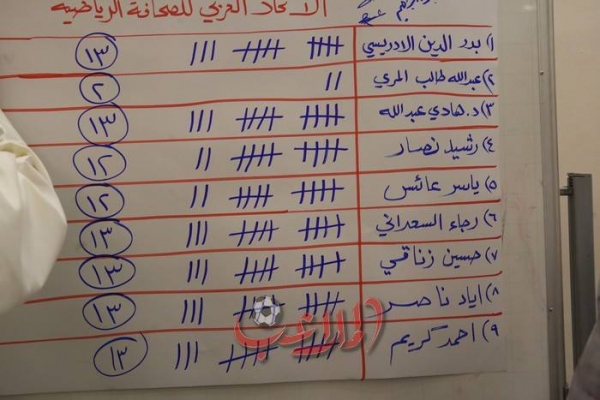 الاتحاد العربي للصحافة الرياضية
١) بدر الدين الادريسي ١٣
٢) عبدالله طالب المري ٢
٣) د. هادي عبدالله ١٣
٤) رشيد نصار ١٢
٥) ياسر عائس ١٢
٦) رجاء السعداني ١٣
٧) حسين زناقي ١٣
٨) اياد ناصر ١٣
٩) احمد كريم ١٣
الملاعب